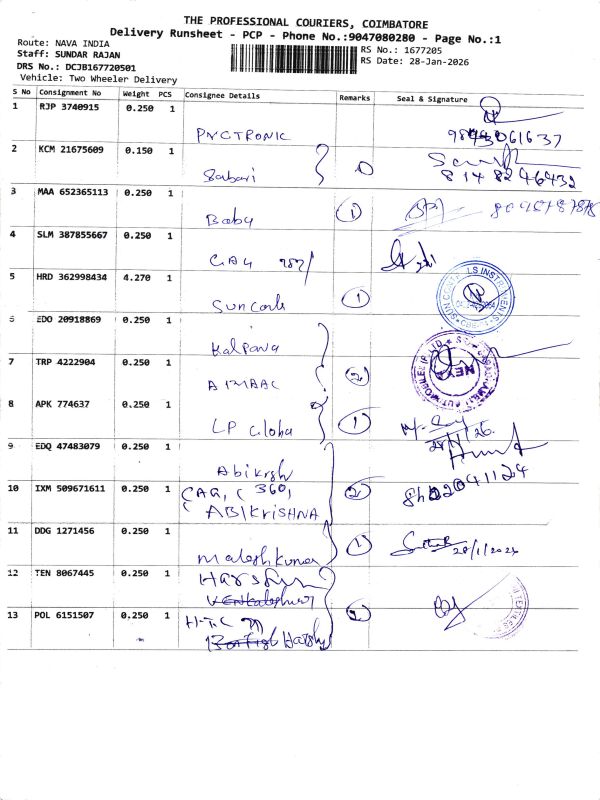 THE PROFESSIONAL COURIERS, COIMBATORE
Delivery Runsheet - PCP - Phone No.:9047080280 - Page No.:1
Route: NAVA INDIA
Staff: SUNDAR RAJAN
DRS No.: DCJB167720501
Vehicle: Two Wheeler Delivery
RS No.: 1677205
RS Date: 28-Jan-2026
S No Consignment No Weight PCS Consignee Details Remarks Seal & Signature
1 RJP 3740915 0.250 1
PNCTRONIC
2 KCM 21675609 0.150 1
Sabari 1
8148246432
3 MAA 652365113 0.250 1
Baby 1
4 SLM 387855667 0.250 1
5 HRD 362998434 4.270 1
Suncorb 1
6 EDO 20918869 0.250 1
Kalpana
7 TRP 4222904 0.250 1
2
8 APK 774637 0.250 1
LP Globa 1
28/1/26.
9 EDQ 47483079 0.250 1
10 IXM 509671611 0.250 1
CAG, ( 360, 2
( ABIKRISHNA
11 DDG 1271456 0.250 1
Maheshkumar 1
12 TEN 8067445 0.250 1
13 POL 6151507 0.250 1
H.T.C 2